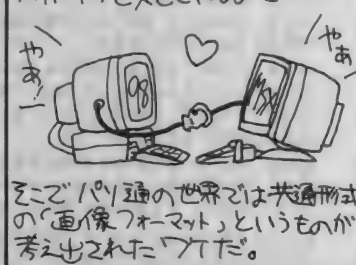 やあ!
98
MSX
やあ
そこでパソ通の世界では共通形式
の「画像フォーマット」というものが
考え出されたワケだ。